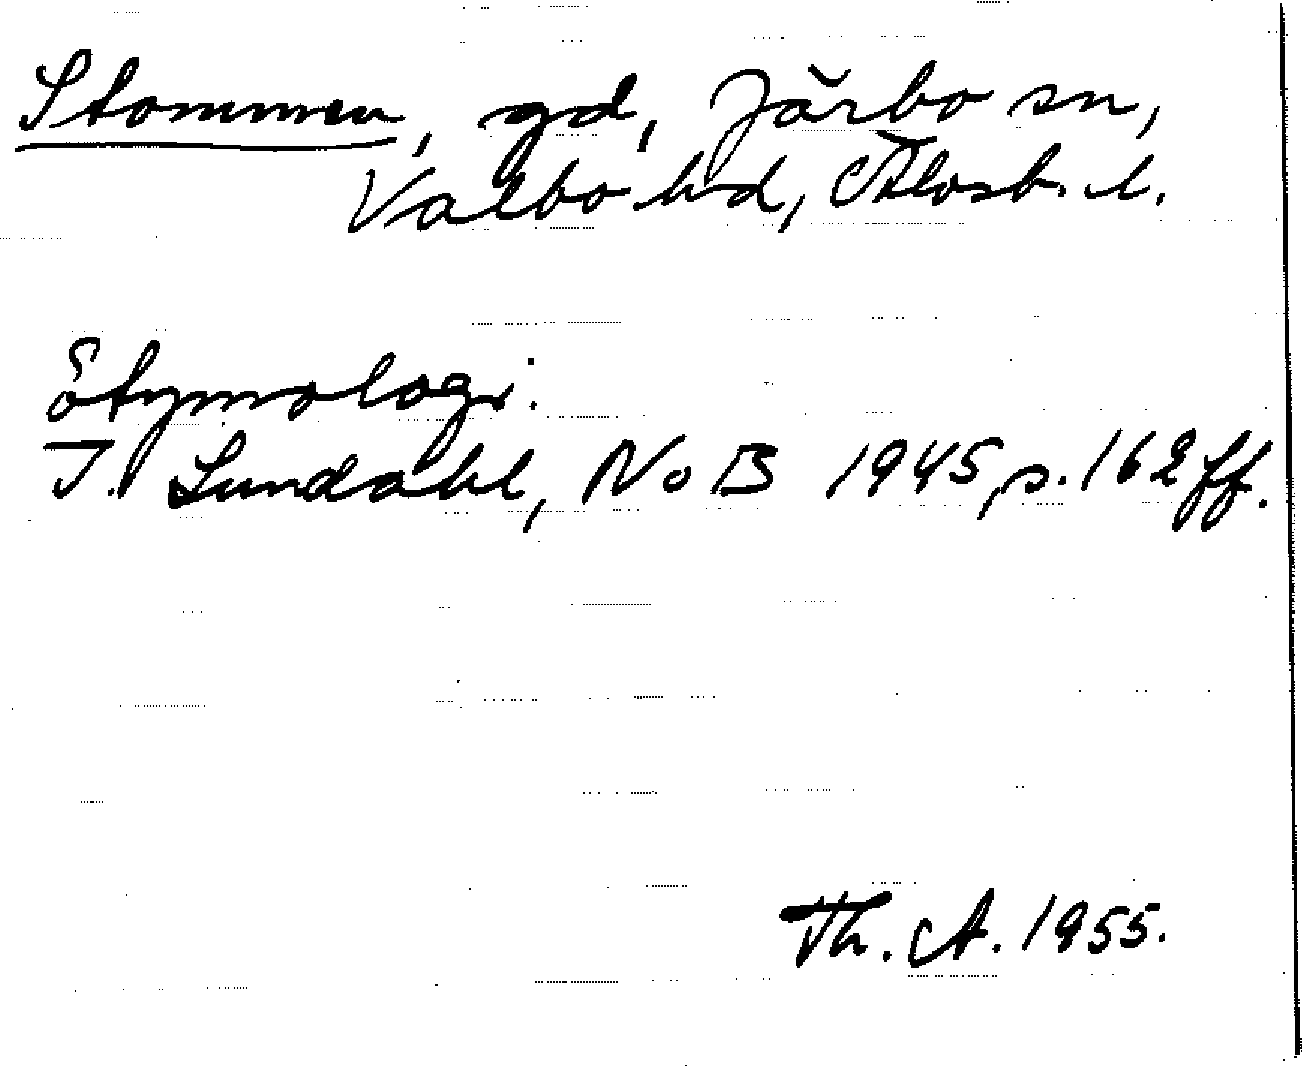 Stommen, gd, Järbo sn,
Valbo hd, Älvsb. l.
Etymologi:
I. Lundahl, NoB 1945, s. 162 ff.
Th. A. 1955.